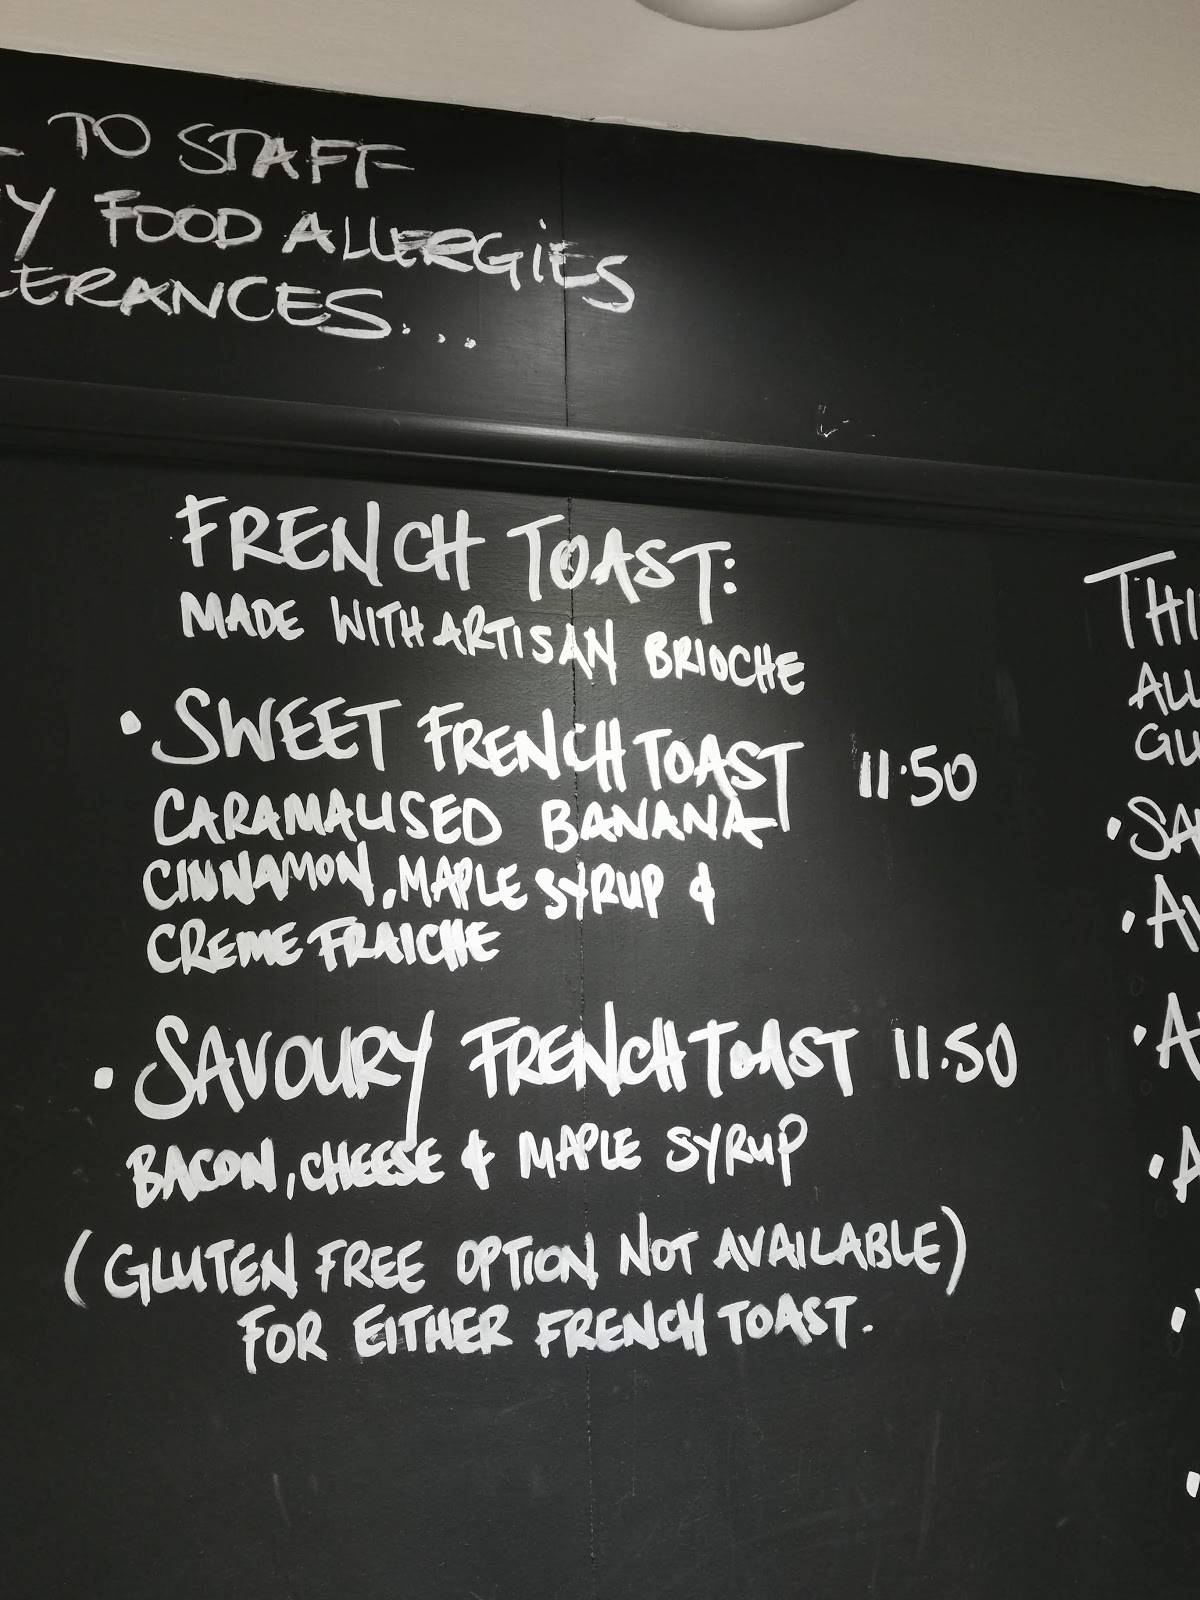 TO STAFF
FOOD ALLERGIES
FRENCH TOAST:
MADE WITH ARTISAN BRIOCHE
• SWEET FRENCH TOAST 11.50
CARAMALISED BANANA
CINNAMON, MAPLE SYRUP &
CREME FRAICHE
• SAVOURY FRENCH TOAST 11.50
BACON, CHEESE & MAPLE SYRUP
(GLUTEN FREE OPTION NOT AVAILABLE)
FOR EITHER FRENCH TOAST.